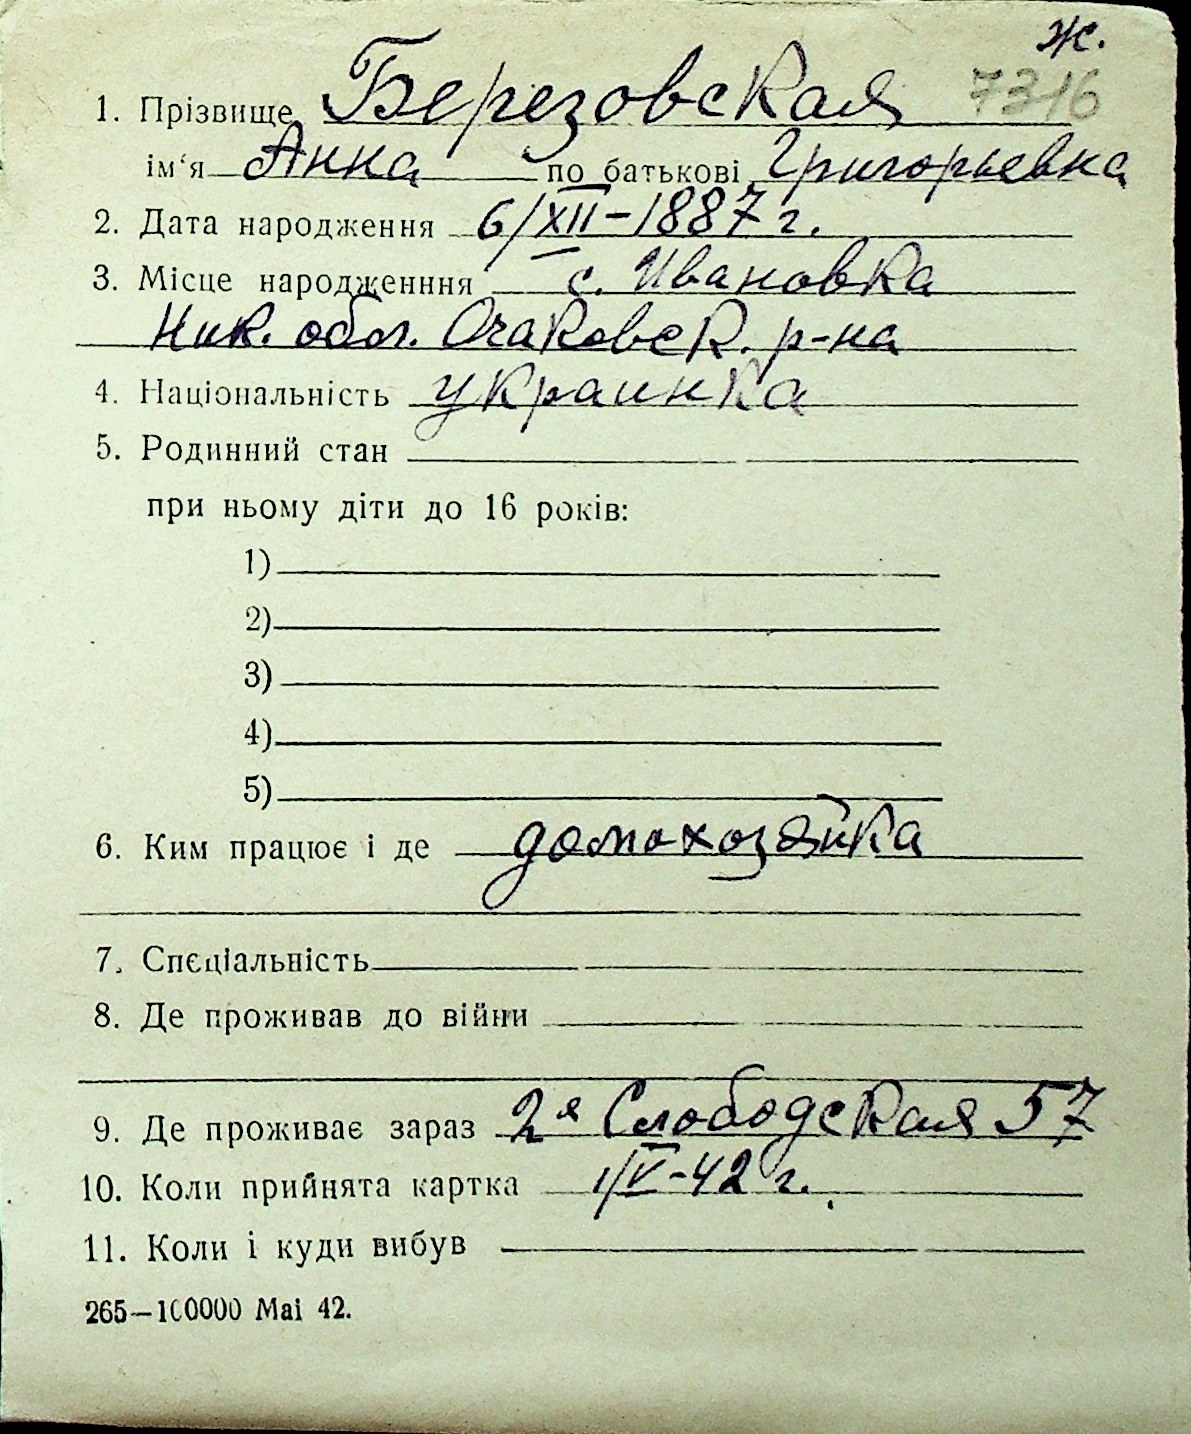 ж.
7316
1. Прізвище Березовская
ім‘я Анна по батькові Григорьевна
2. Дата народження 6/XII–1887 г.
3. Місце народженння с. Ивановка
Ник. обл. Очаковск. р-на
4. Національність украинка
5. Родинний стан
при ньому діти до 16 років:
1)
2)
3)
4)
5)
6. Ким працює і де домохозяйка
7. Спєціальність
8. Де проживав до війни
9. Де проживає зараз 2я Слободская 57
10. Коли прийнята картка 1/V-42 г.
11. Коли і куди вибув
265—100000 Mai 42.